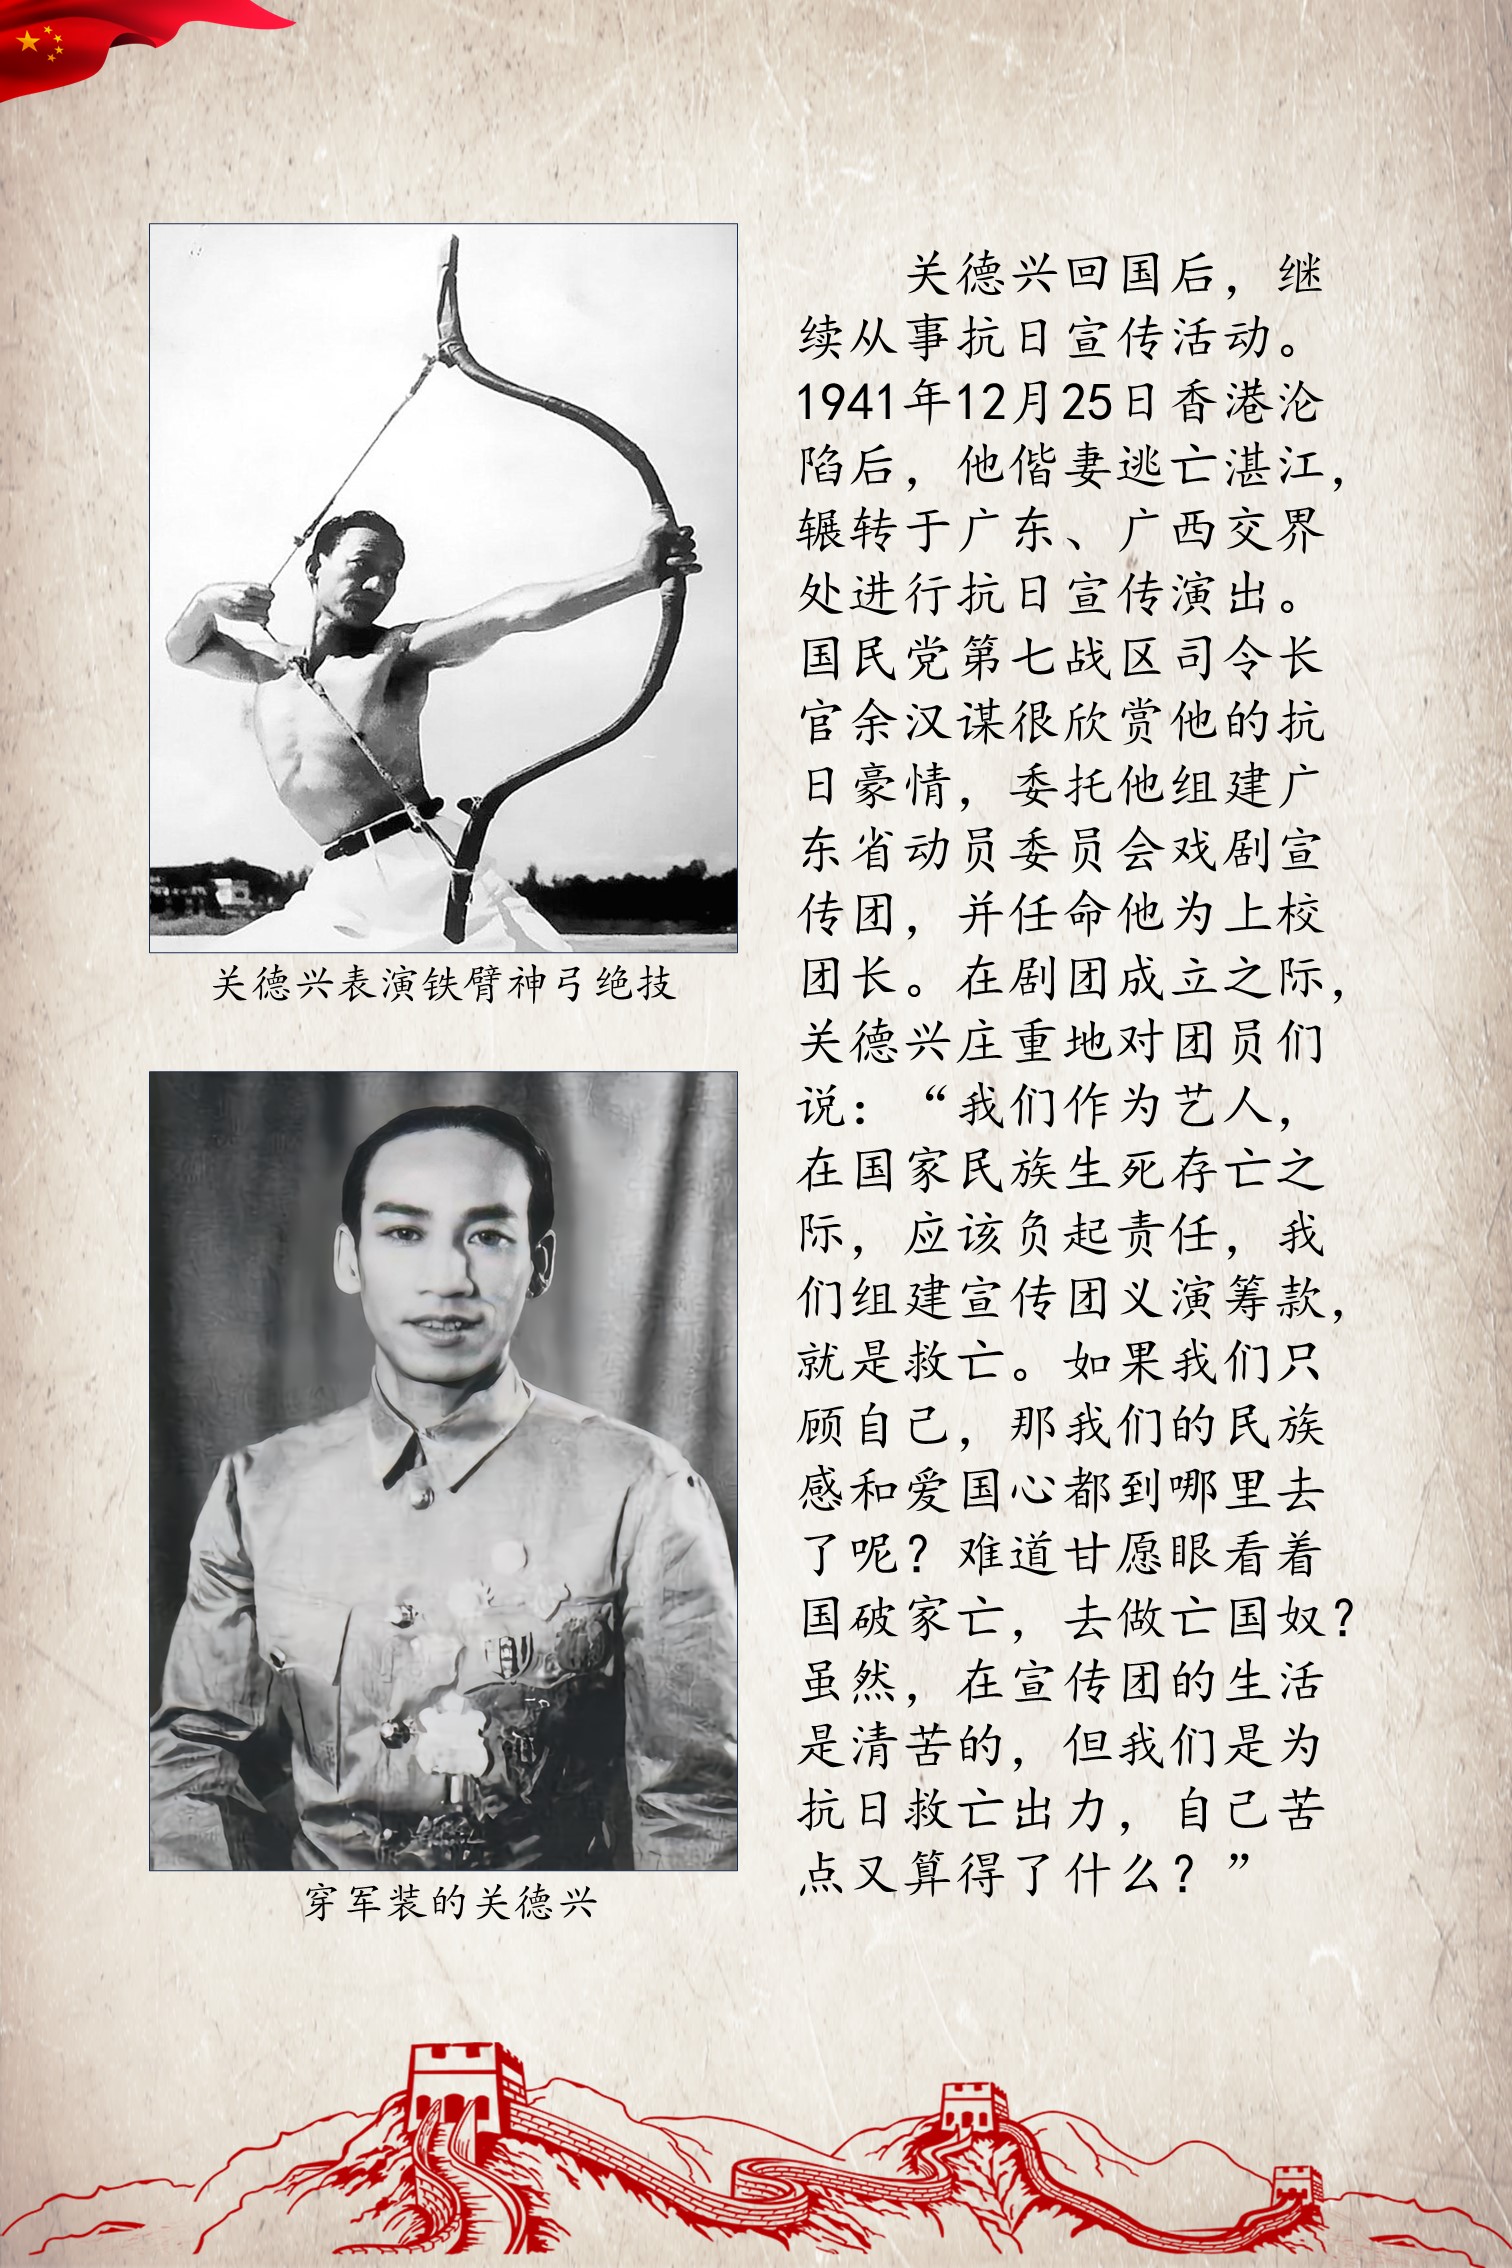 关德兴表演铁臂神弓绝技
穿军装的关德兴
关德兴回国后，继
续从事抗日宣传活动。
1941年12月25日香港沦
陷后，他偕妻逃亡湛江，
辗转于广东、广西交界
处进行抗日宣传演出。
国民党第七战区司令长
官余汉谋很欣赏他的抗
日豪情，委托他组建广
东省动员委员会戏剧宣
传团，并任命他为上校
团长。在剧团成立之际，
关德兴庄重地对团员们
说：“我们作为艺人，
在国家民族生死存亡之
际，应该负起责任，我
们组建宣传团义演筹款，
就是救亡。如果我们只
顾自己，那我们的民族
感和爱国心都到哪里去
了呢？难道甘愿眼看着
国破家亡，去做亡国奴？
虽然，在宣传团的生活
是清苦的，但我们是为
抗日救亡出力，自己苦
点又算得了什么？”